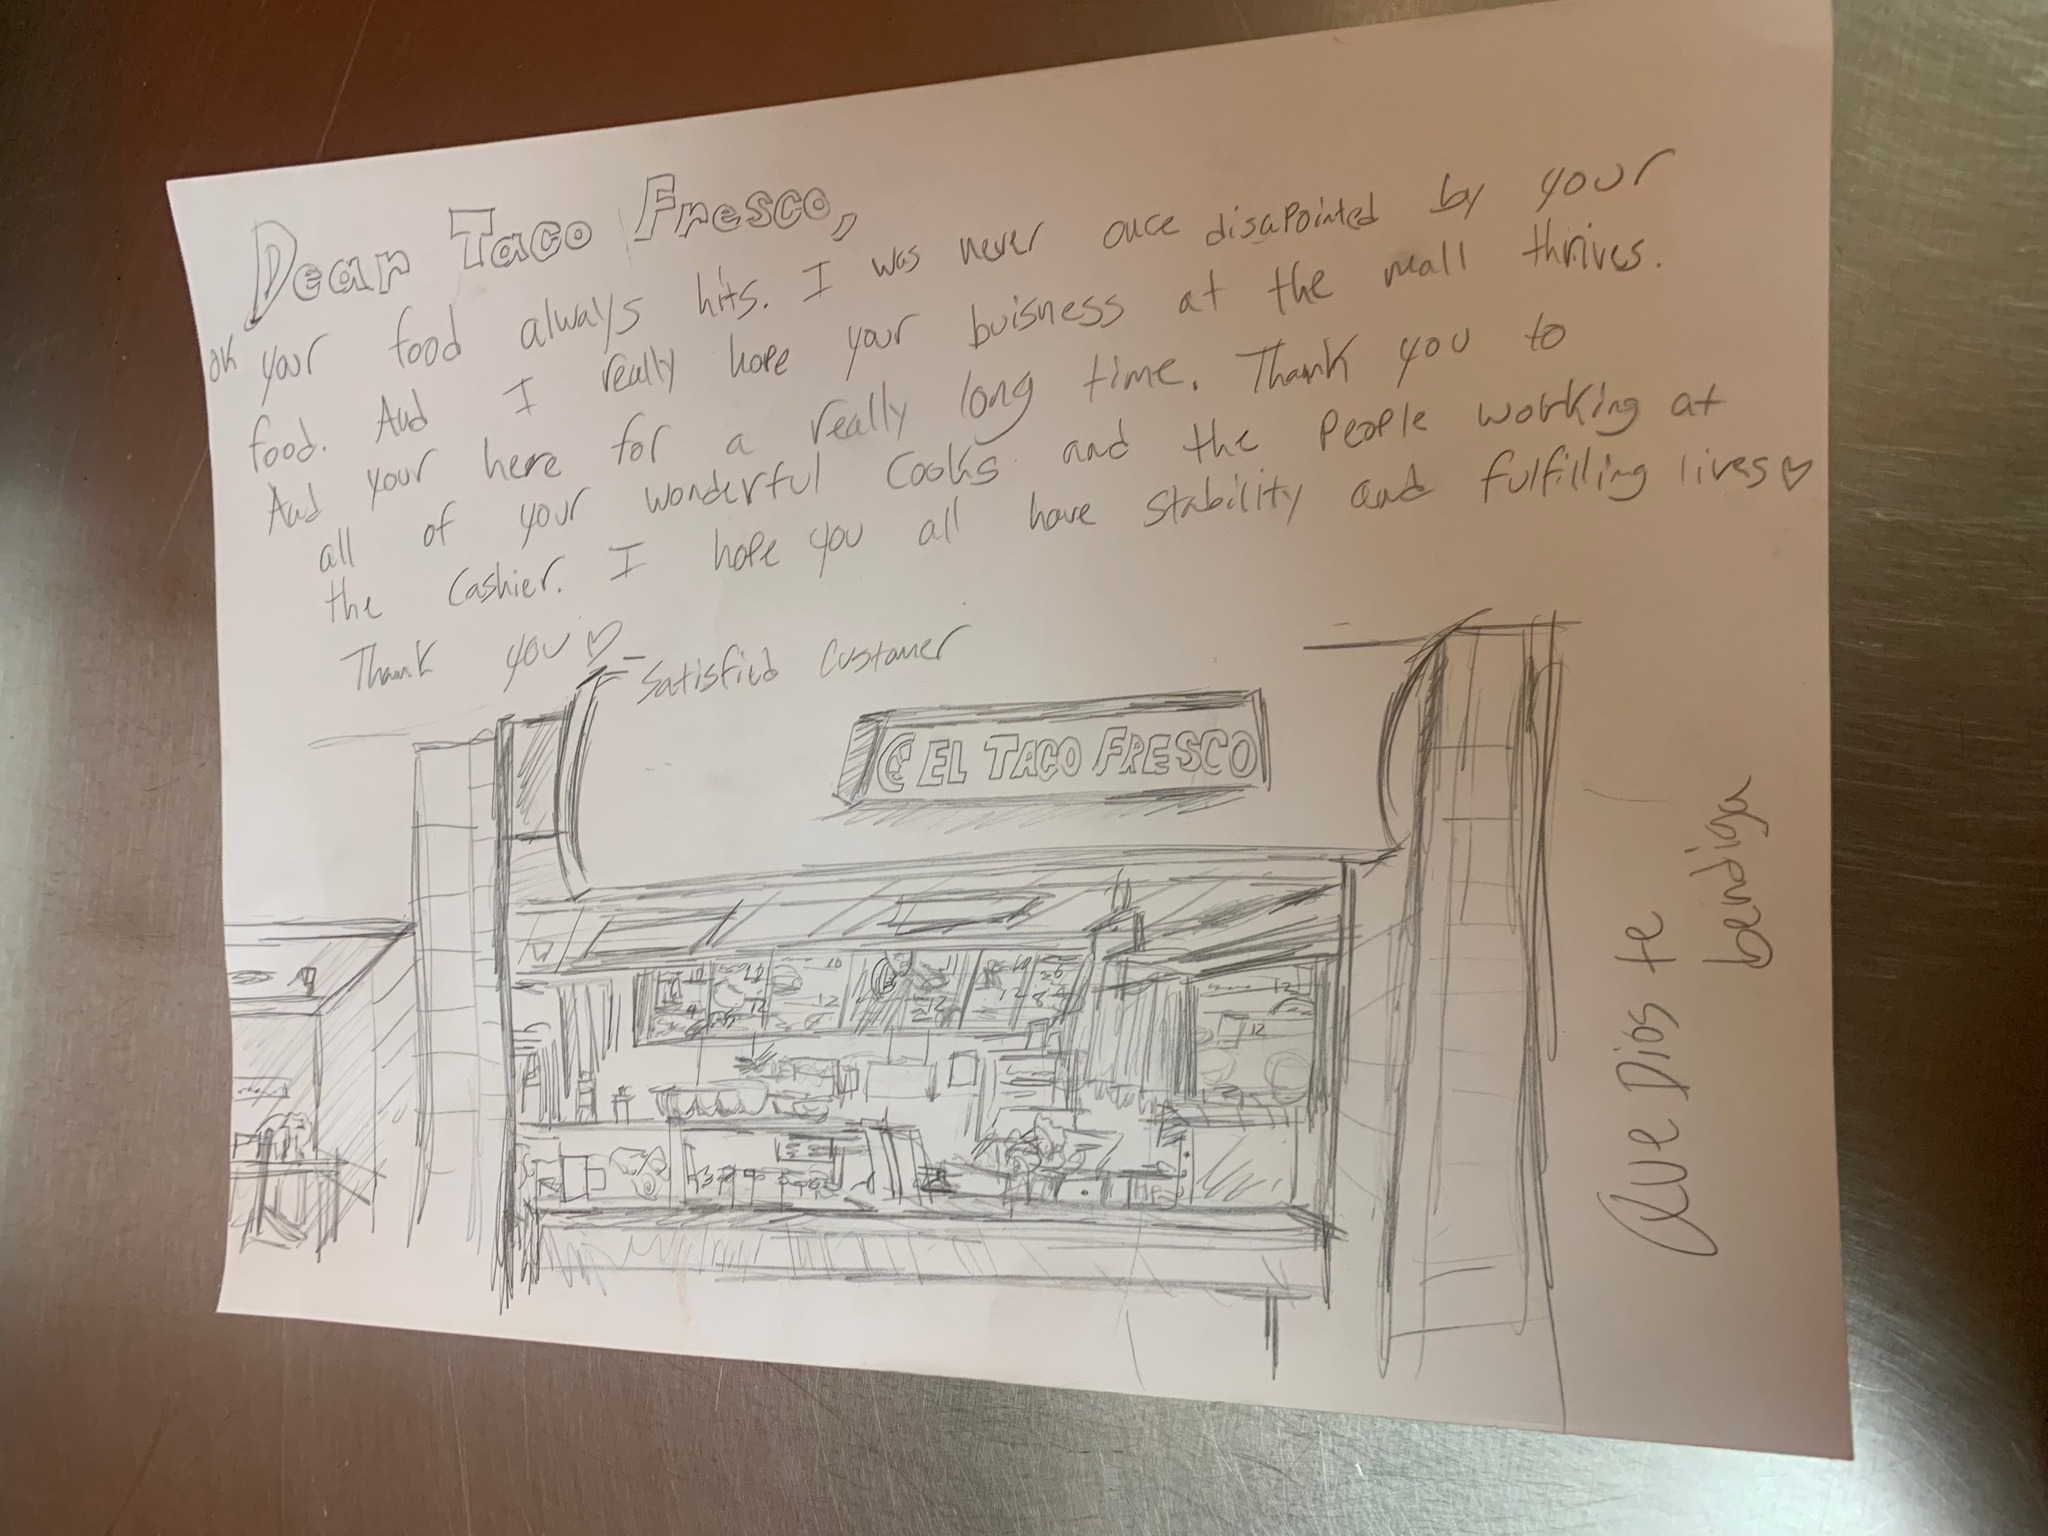 Dear Taco Fresco,
OK your food always hits. I was never once disapointed by your
food. And I really hope your buisness at the mall thrives.
And your here for a really long time. Thank you to
all of your wonderful cooks and the people working at
the cashier. I hope you all have stability and fulfilling lives♡
Thank you♡
- Satisfied Customer
EL TACO FRESCO
Que Dios te
bendiga